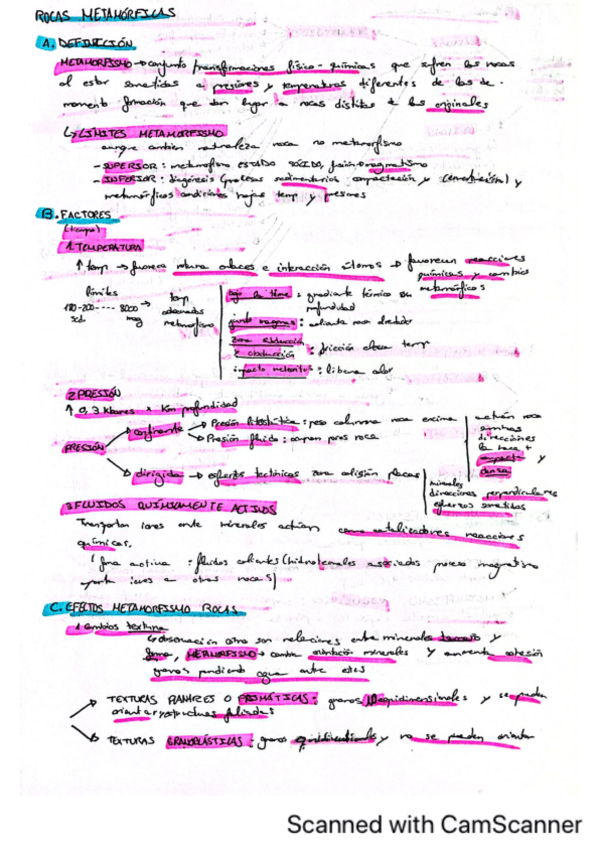 ROCAS METAMÓRFICAS
A. DEFINICIÓN
METAMORFISMO → conjunto transformaciones físico-químicas que sufren las rocas
al estar sometidas a presiones y temperaturas diferentes de las de
momento formación que dan lugar a rocas distintas a las originales
↳ LÍMITES METAMORFISMO
aunque cambien naturaleza roca no metamorfismo
- SUPERIOR: metamorfismo ESTADO SÓLIDO, fusión magmatismo
- INFERIOR: diagénesis (procesos sedimentarios compactación y cementación) y
metamórficos condiciones temp y presiones
B. FACTORES
(tiempo)
1. TEMPERATURA
↑ temp → favorece rotura enlaces e interacción átomos → favorecen reacciones
químicas y cambios
metamórficos
límites
temp
adecuadas
metamorfismo
: gradiente térmico
profundidad
: calienta roca
zona subducción
o obducción : fricción eleva temp
impacto meteorito : libera calor
2 PRESIÓN
↑ 0,3 Kbares x Km profundidad
PRESIÓN
confinante → Presión litostática: peso columna roca encima
→ Presión fluido: ocupan poros roca
actúan
direcciones
la hace +
compacta y
densa
dirigida → esfuerzos tectónicos zona colisión placas
minerales
direcciones perpendiculares
esfuerzo sometidas
3 FLUIDOS QUÍMICAMENTE ACTIVOS
Transportan iones entre minerales actúan como catalizadores reacciones
químicas.
(forma activa: fluidos calientes (hidrotermales asociados proceso magmático
aporta iones a otras rocas)
C. EFECTOS METAMORFISMO ROCAS
1 Cambios textura
relaciones entre minerales tamaño y
forma, METAMORFISMO → cambia orientación minerales y aumenta cohesión
granos perdiendo agua entre estos
→ TEXTURAS PLANARES O PRISMÁTICAS: granos y se pueden
orientar y estructuras foliadas
→ TEXTURAS GRANOBLÁSTICAS: granos equidimensionales y no se pueden orientar
Scanned with CamScanner